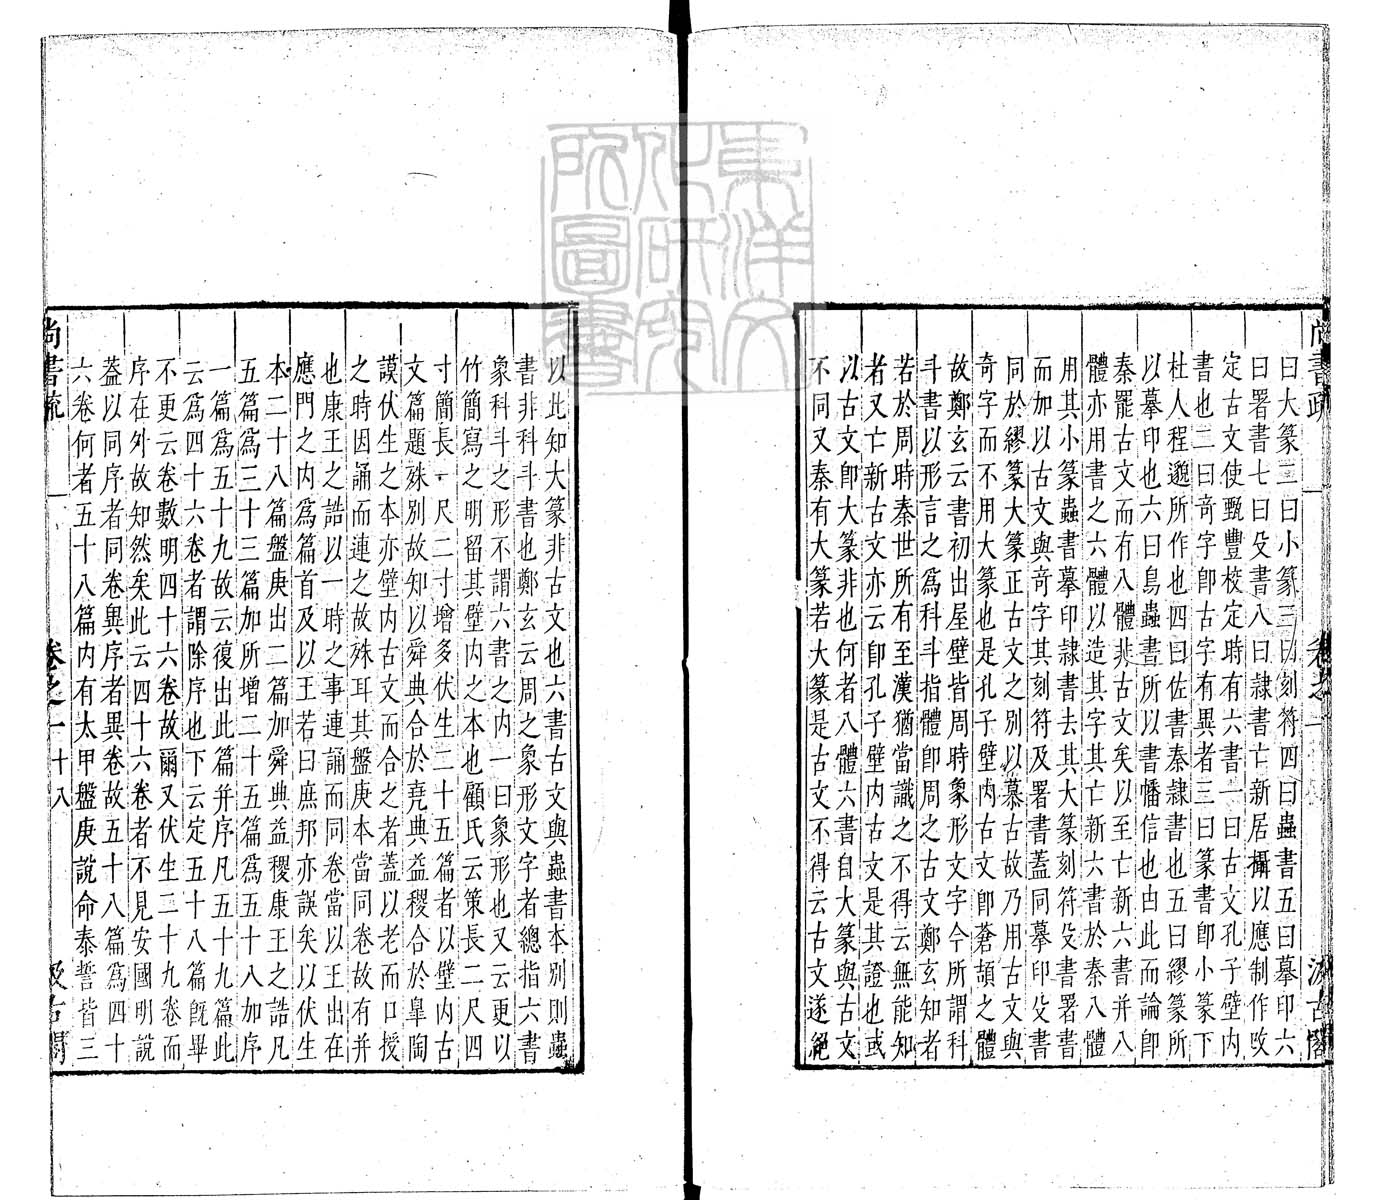 尚書疏 卷之一 汲古閣
曰大篆二曰小篆三曰刻符四曰蟲書五曰摹印六
曰署書七曰殳書八曰隸書亡新居攝以應制作改
定古文使甄豐校定時有六書一曰古文孔子壁內
書也二曰奇字卽古字有異者三曰篆書卽小篆下
杜人程邈所作也四曰佐書秦隸書也五曰繆篆所
以摹印也六曰鳥蟲書所以書幡信也由此而論卽
秦罷古文而有八體非古文矣以至亡新六書并八
體亦用書之六體以造其字其亡新六書於秦八體
用其小篆蟲書摹印隸書去其大篆刻符殳書署書
而加以古文與奇字其刻符及署書蓋同摹印殳書
同於繆篆大篆正古文之別以慕古故乃用古文與
奇字而不用大篆也是孔子壁內古文卽蒼頡之體
故鄭玄云書初出屋壁皆周時象形文字今所謂科
斗書以形言之爲科斗指體卽周之古文鄭玄知者
若於周時秦世所有至漢猶當識之不得云無能知
者又亡新古文亦云卽孔子壁內古文是其證也或
以古文卽大篆非也何者八體六書自大篆與古文
不同又秦有大篆若大篆是古文不得云古文遂絕
以此知大篆非古文也六書古文與蟲書本別則蟲
書非科斗書也鄭玄云周之象形文字者總指六書
象科斗之形不謂六書之內一曰象形也又云更以
竹簡寫之明留其壁內之本也顧氏云策長二尺四
寸簡長一尺二寸增多伏生二十五篇者以壁內古
文篇題殊別故知以舜典合於堯典益稷合於皋陶
謨伏生之本亦壁內古文而合之者蓋以老而口授
之時因誦而連之故殊耳其盤庚本當同卷故有并
也康王之誥以一時之事連誦而同卷當以王出在
應門之內爲篇首及以王若曰庶邦亦誤矣以伏生
本二十八篇盤庚出二篇加舜典益稷康王之誥凡
五篇爲三十三篇加所增二十五篇爲五十八加序
一篇爲五十九故云復出此篇并序凡五十九篇此
云爲四十六卷者謂除序也下云定五十八篇旣畢
不更云卷數明四十六卷故爾又伏生二十九卷而
序在外故知然矣此云四十六卷者不見安國明說
蓋以同序者同卷異序者異卷故五十八篇爲四十
六卷何者五十八篇內有太甲盤庚說命泰誓皆三
尚書疏 卷之一 十八 汲古閣
東洋文化研究所圖書